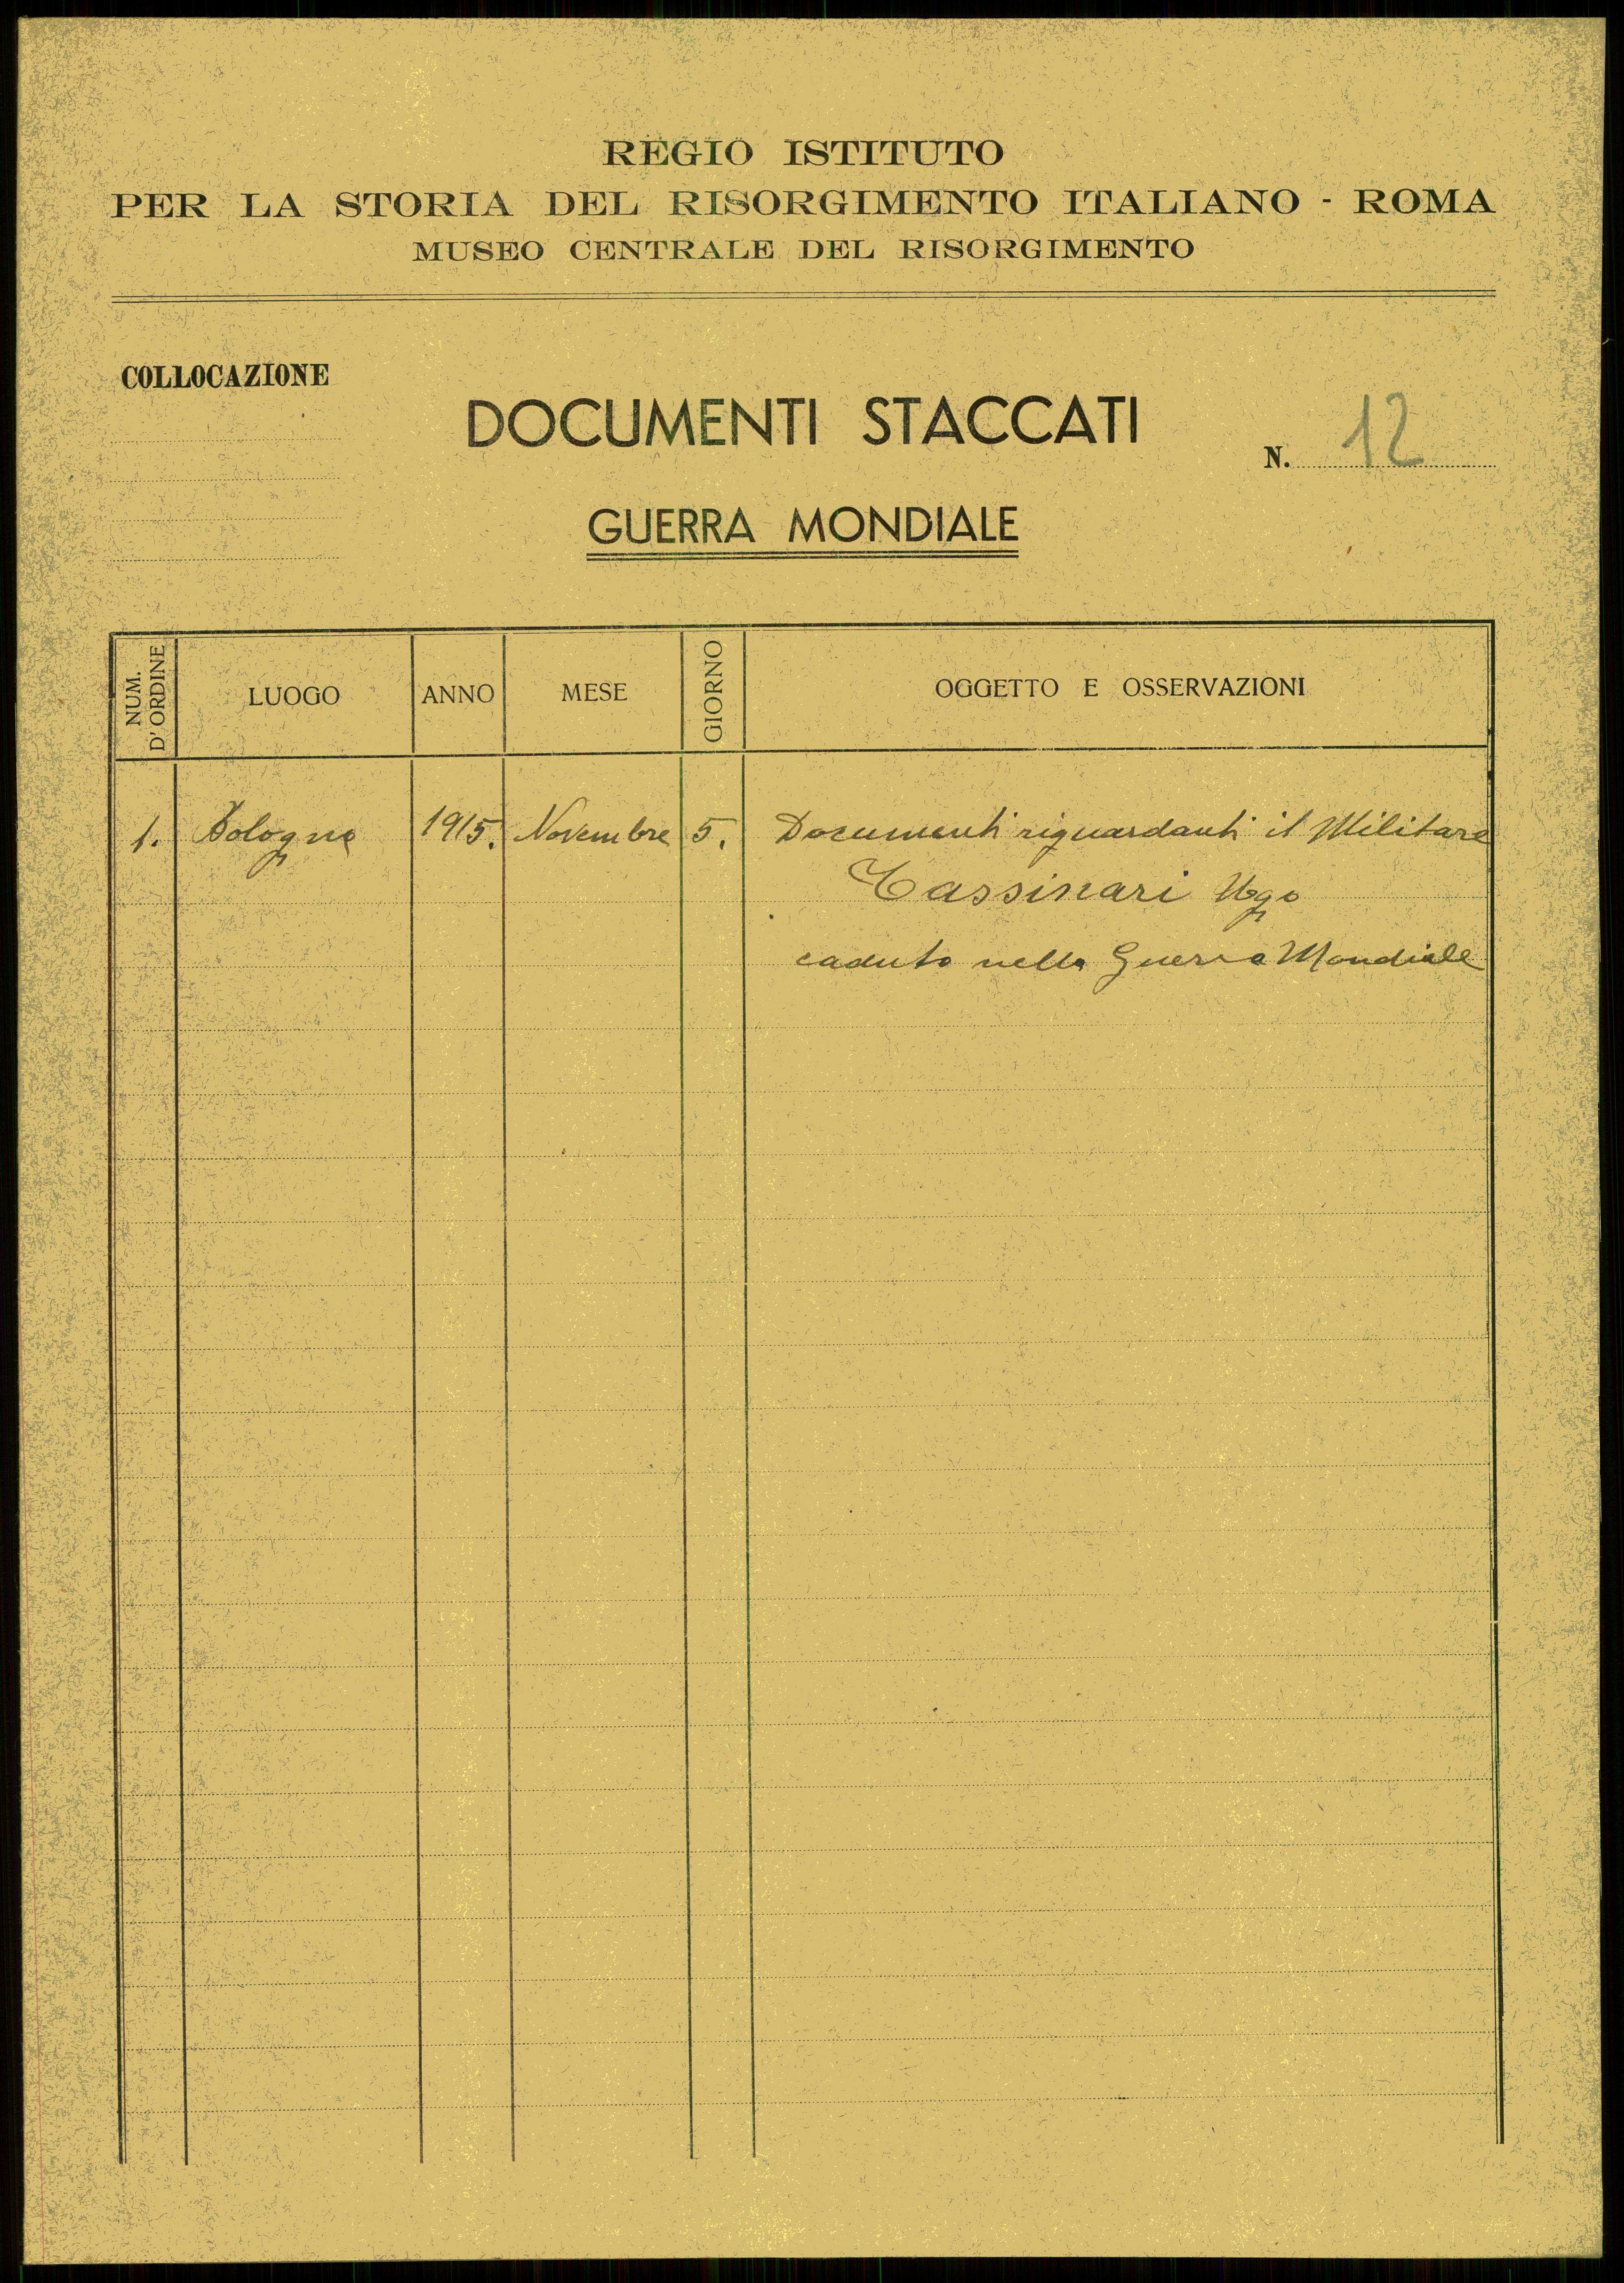 REGIO ISTITUTO
PER LA STORIA DEL RISORGIMENTO ITALIANO - ROMA
MUSEO CENTRALE DEL RISORGIMENTO
COLLOCAZIONE
DOCUMENTI STACCATI
N. 12
GUERRA MONDIALE
NUM. D'ORDINE LUOGO ANNO MESE GIORNO OGGETTO E OSSERVAZIONI
1. Bologna 1915. Novembre 5. Documenti riguardanti il Militare
Cassinari Ugo
caduto nella Guerra Mondiale